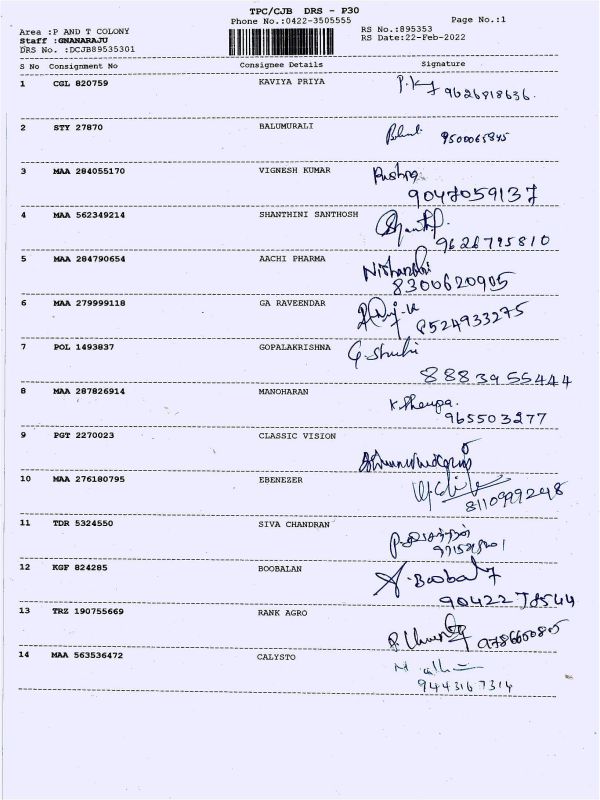 TPC/CJB DRS - P30
Phone No.:0422-3505555 Page No.:1
Area :P AND T COLONY RS No.:895353
Staff :GNANARAJU RS Date:22-Feb-2022
DRS No. :DCJB89535301
S No Consignment No Consignee Details Signature
1 CGL 820759 KAVIYA PRIYA
9626818636.
2 STY 27870 BALUMURALI
9500065845
3 MAA 284055170 VIGNESH KUMAR
9047059137
4 MAA 562349214 SHANTHINI SANTHOSH
9626795810
5 MAA 284790654 AACHI PHARMA
8300620905
6 MAA 279999118 GA RAVEENDAR
8524933275
7 POL 1493837 GOPALAKRISHNA
8883955444
8 MAA 287826914 MANOHARAN
965503277
9 PGT 2270023 CLASSIC VISION
10 MAA 276180795 EBENEZER
8110999248
11 TDR 5324550 SIVA CHANDRAN
12 KGF 824285 BOOBALAN
A. Booba
90422 78544
13 TRZ 190755669 RANK AGRO
14 MAA 563536472 CALYSTO
9443167314